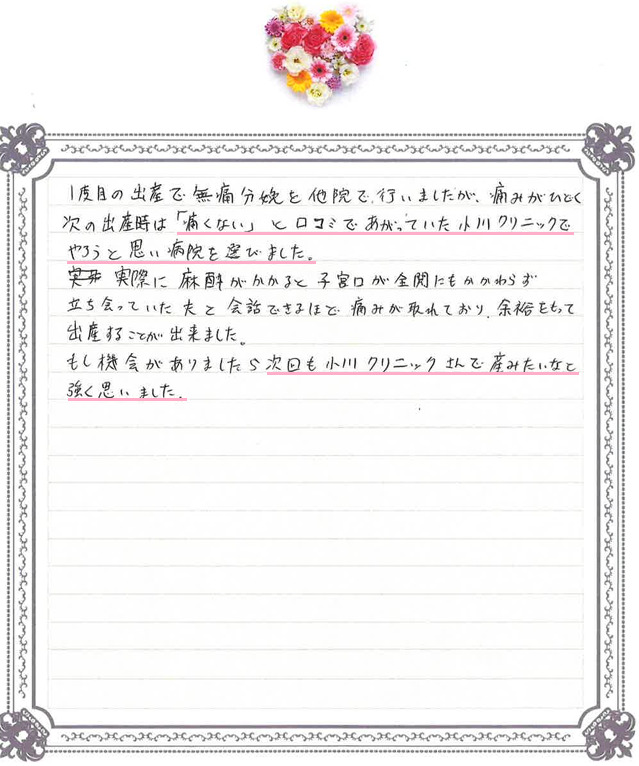 1度目の出産で無痛分娩を他院で行いましたが、痛みがひどく
次の出産時は「痛くない」と口コミであがっていた小川クリニックで
やろうと思い病院を選びました。
実際に麻酔がかかると子宮口が全開にもかかわらず
立ち会っていた夫と会話できるほど痛みが取れており、余裕をもって
出産することが出来ました。
もし機会がありましたら次回も小川クリニックさんで産みたいなと
強く思いました。